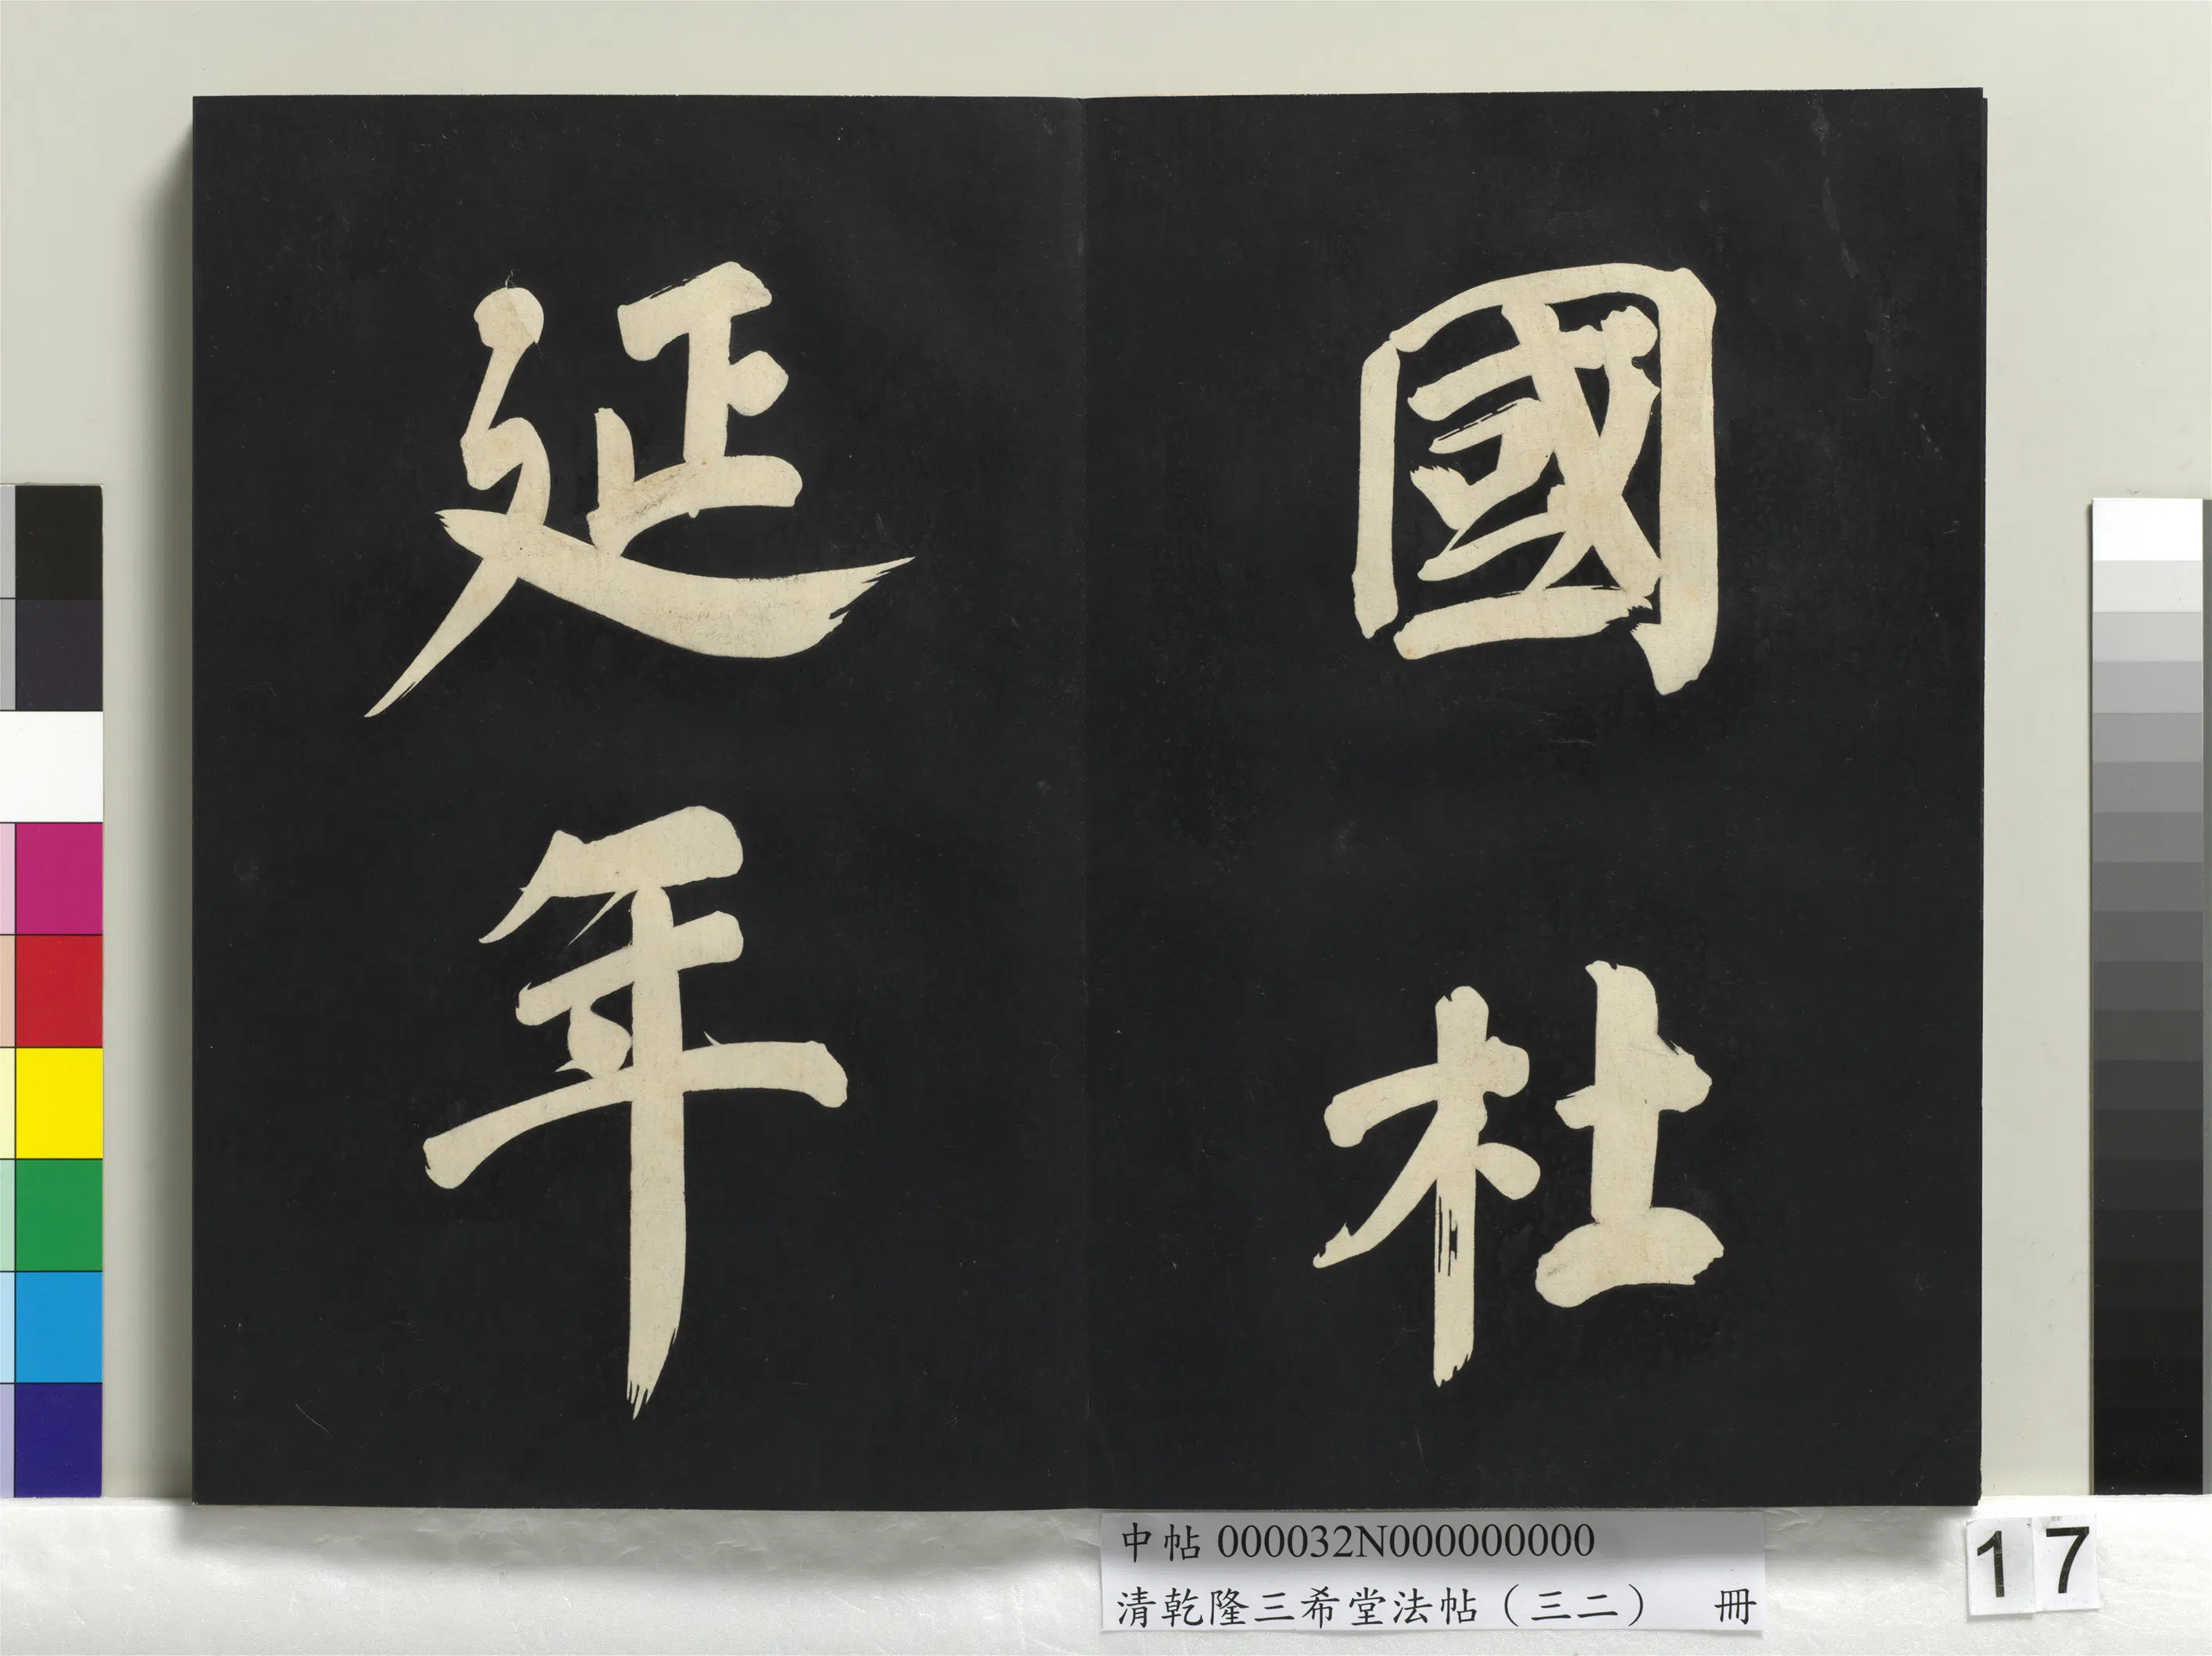 國杜
延年
中帖 000032N000000000
清乾隆三希堂法帖（三二） 冊
17